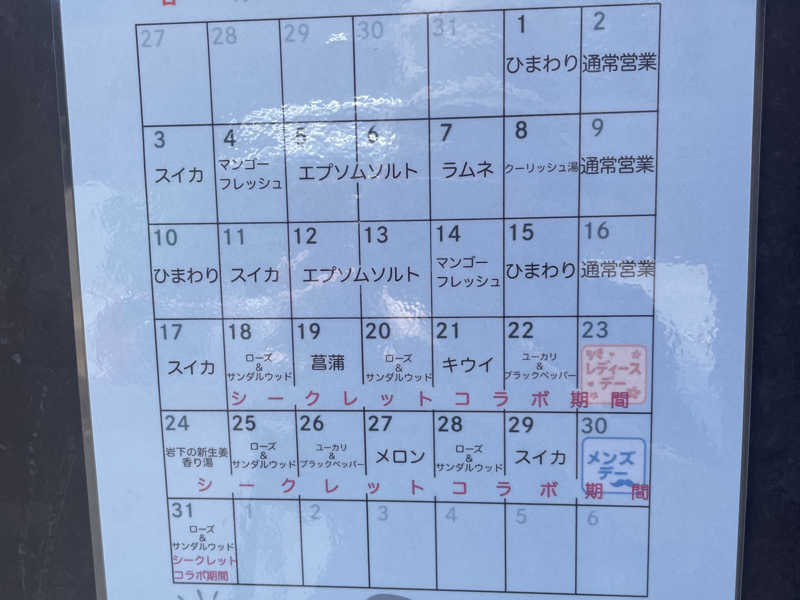 27 28 29 30 31 1 2
ひまわり 通常営業
3 4 5 6 7 8 9
スイカ マンゴー フレッシュ エプソムソルト ラムネ クーリッシュ湯 通常営業
10 11 12 13 14 15 16
ひまわり スイカ エプソムソルト マンゴー フレッシュ ひまわり 通常営業
17 18 19 20 21 22 23
スイカ ローズ & サンダルウッド 菖蒲 ローズ & サンダルウッド キウイ ユーカリ & ブラックペッパー レディース デー
シークレットコラボ期間
24 25 26 27 28 29 30
岩下の新生姜 香り湯 ローズ & サンダルウッド ユーカリ & ブラックペッパー メロン ローズ & サンダルウッド スイカ メンズ デー
シークレットコラボ期間
31 1 2 3 4 5 6
ローズ
&
サンダルウッド
シークレット
コラボ期間